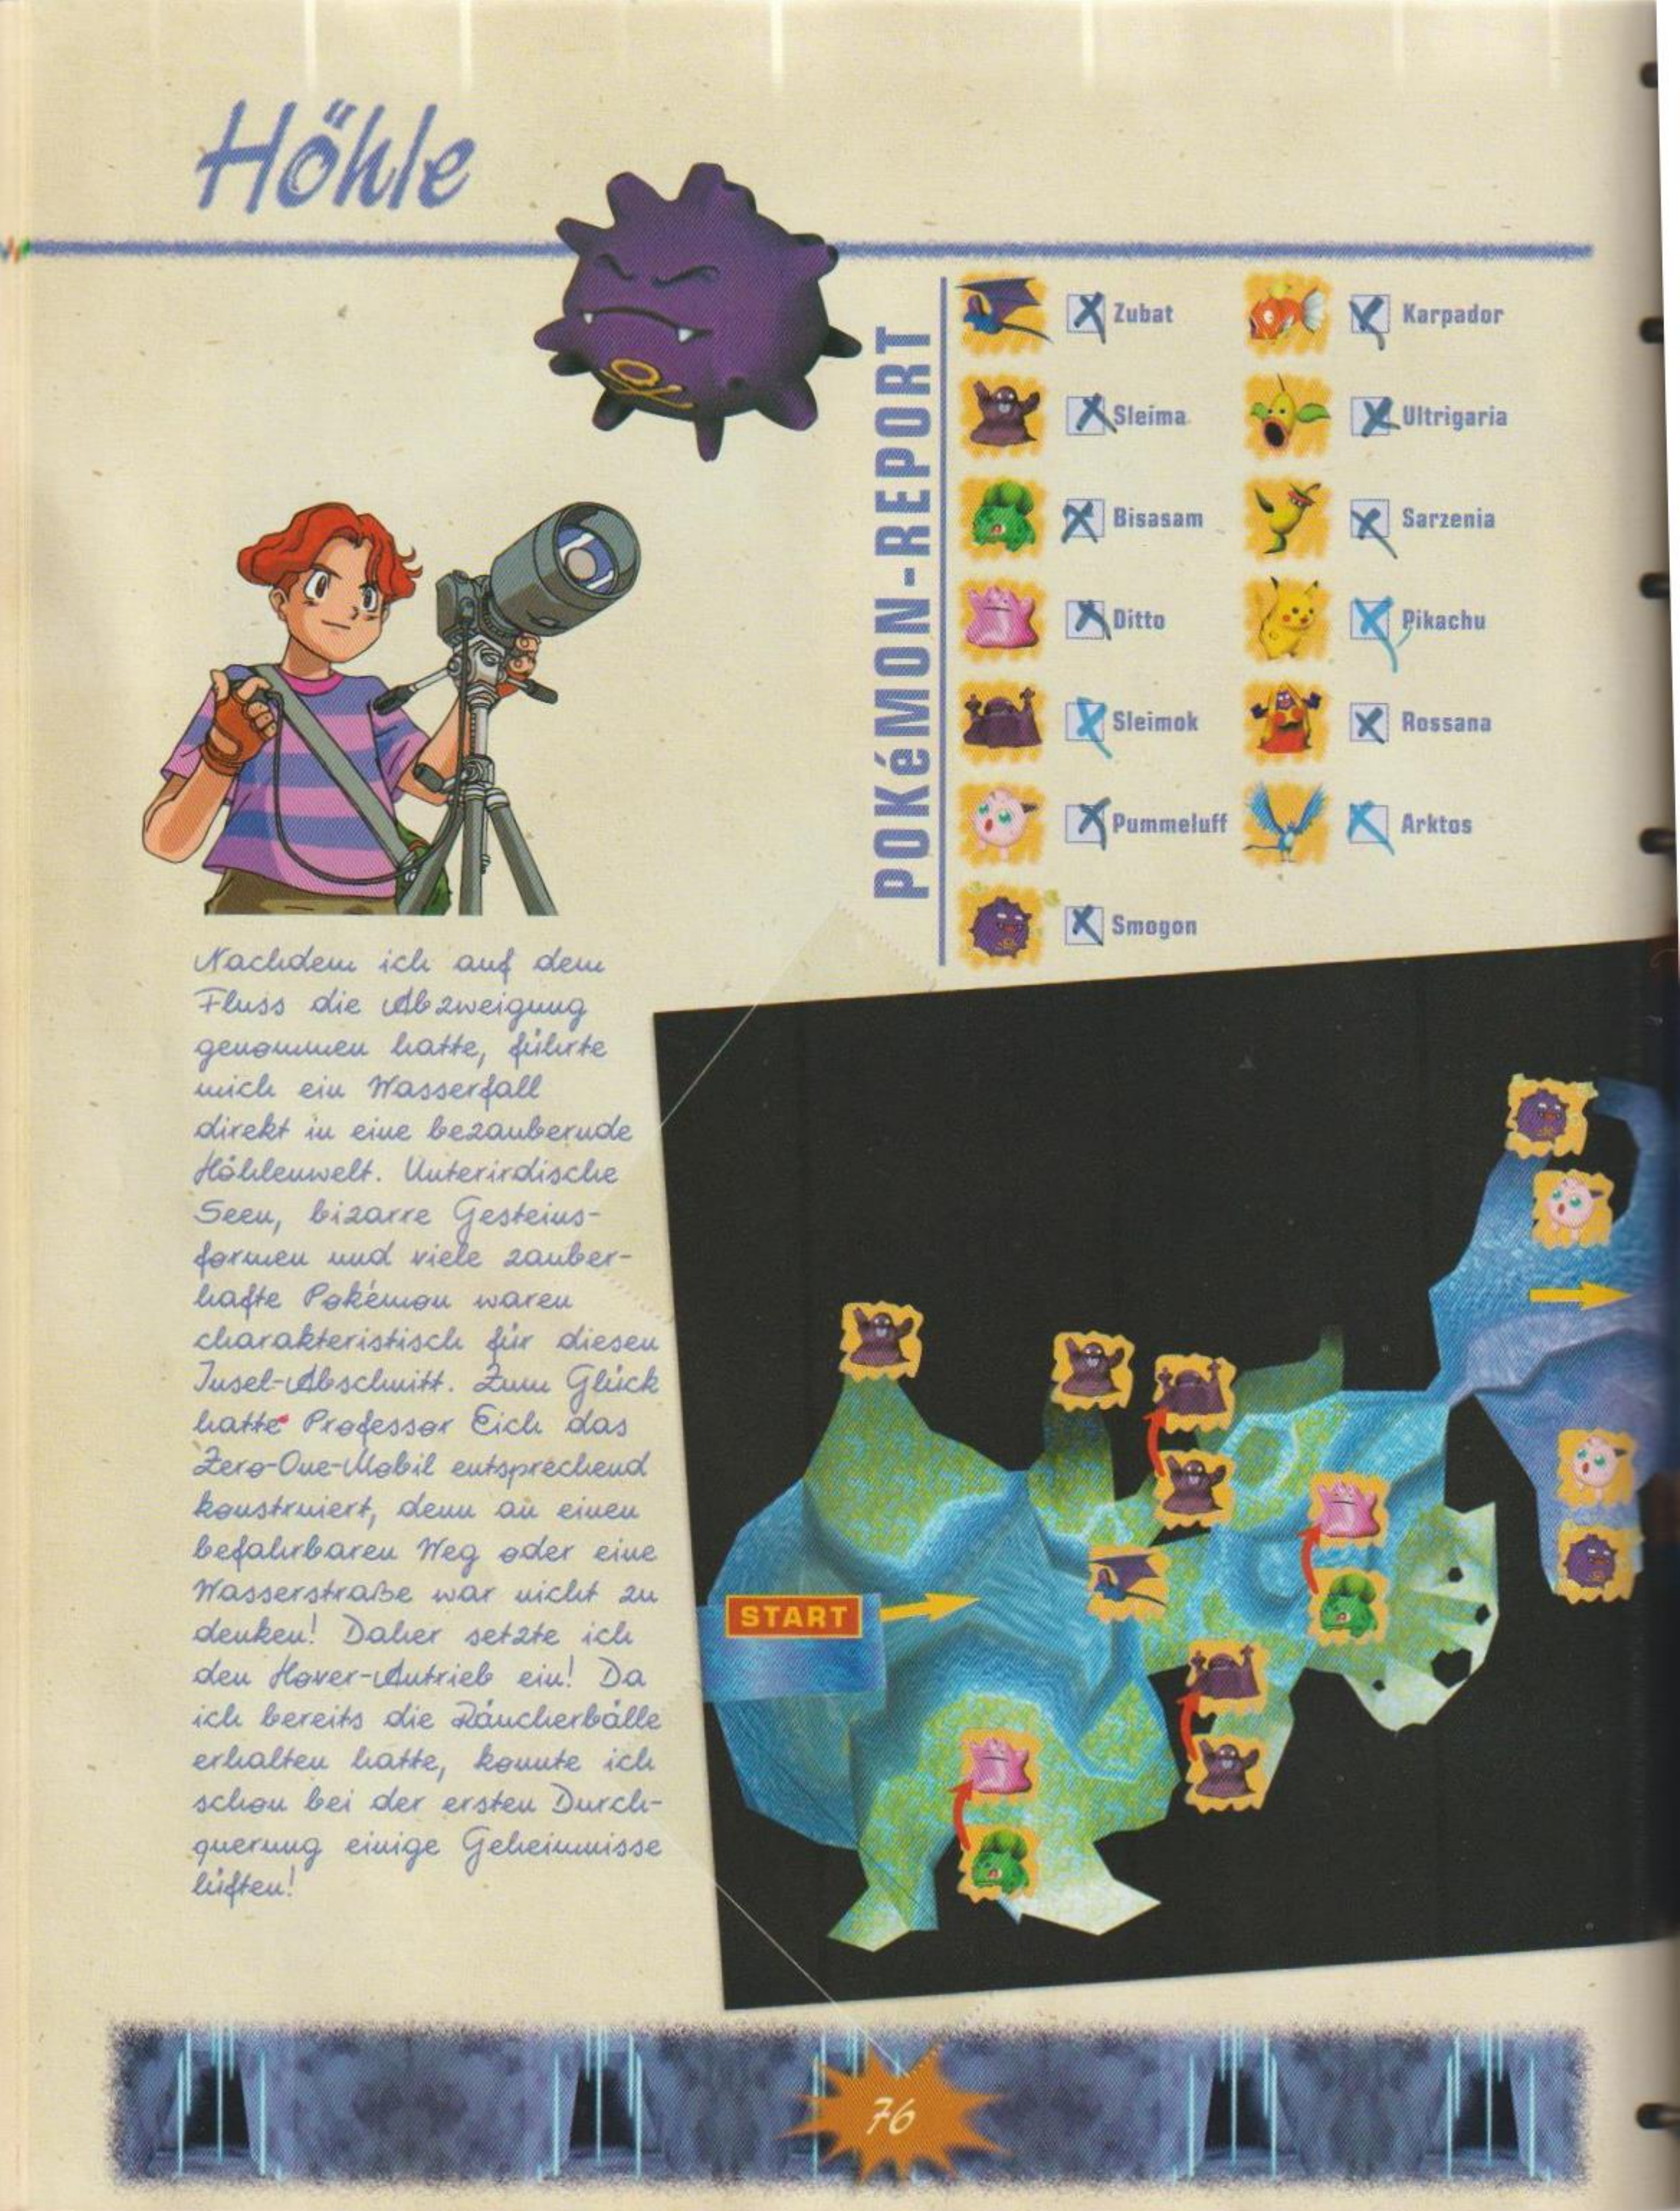 Höhle
POKéMON-REPORT
Zubat
Sleima
Bisasam
Ditto
Sleimok
Pummeluff
Smogon
Karpador
Ultrigaria
Sarzenia
Pikachu
Rossana
Arktos
Nachdem ich auf dem
Fluss die Abzweigung
genommen hatte, führte
mich ein Wasserfall
direkt in eine bezaubernde
Höhlenwelt. Unterirdische
Seen, bizarre Gesteins-
formen und viele zauber-
hafte Pokémon waren
charakteristisch für diesen
Insel-Abschnitt. Zum Glück
hatte Professor Eich das
Zero-One-Mobil entsprechend
konstruiert, denn an einen
befahrbaren Weg oder eine
Wasserstraße war nicht zu
denken! Daher setzte ich
den Hover-Antrieb ein! Da
ich bereits die Räucherbälle
erhalten hatte, konnte ich
schon bei der ersten Durch-
querung einige Geheimnisse
lüften!
START
76